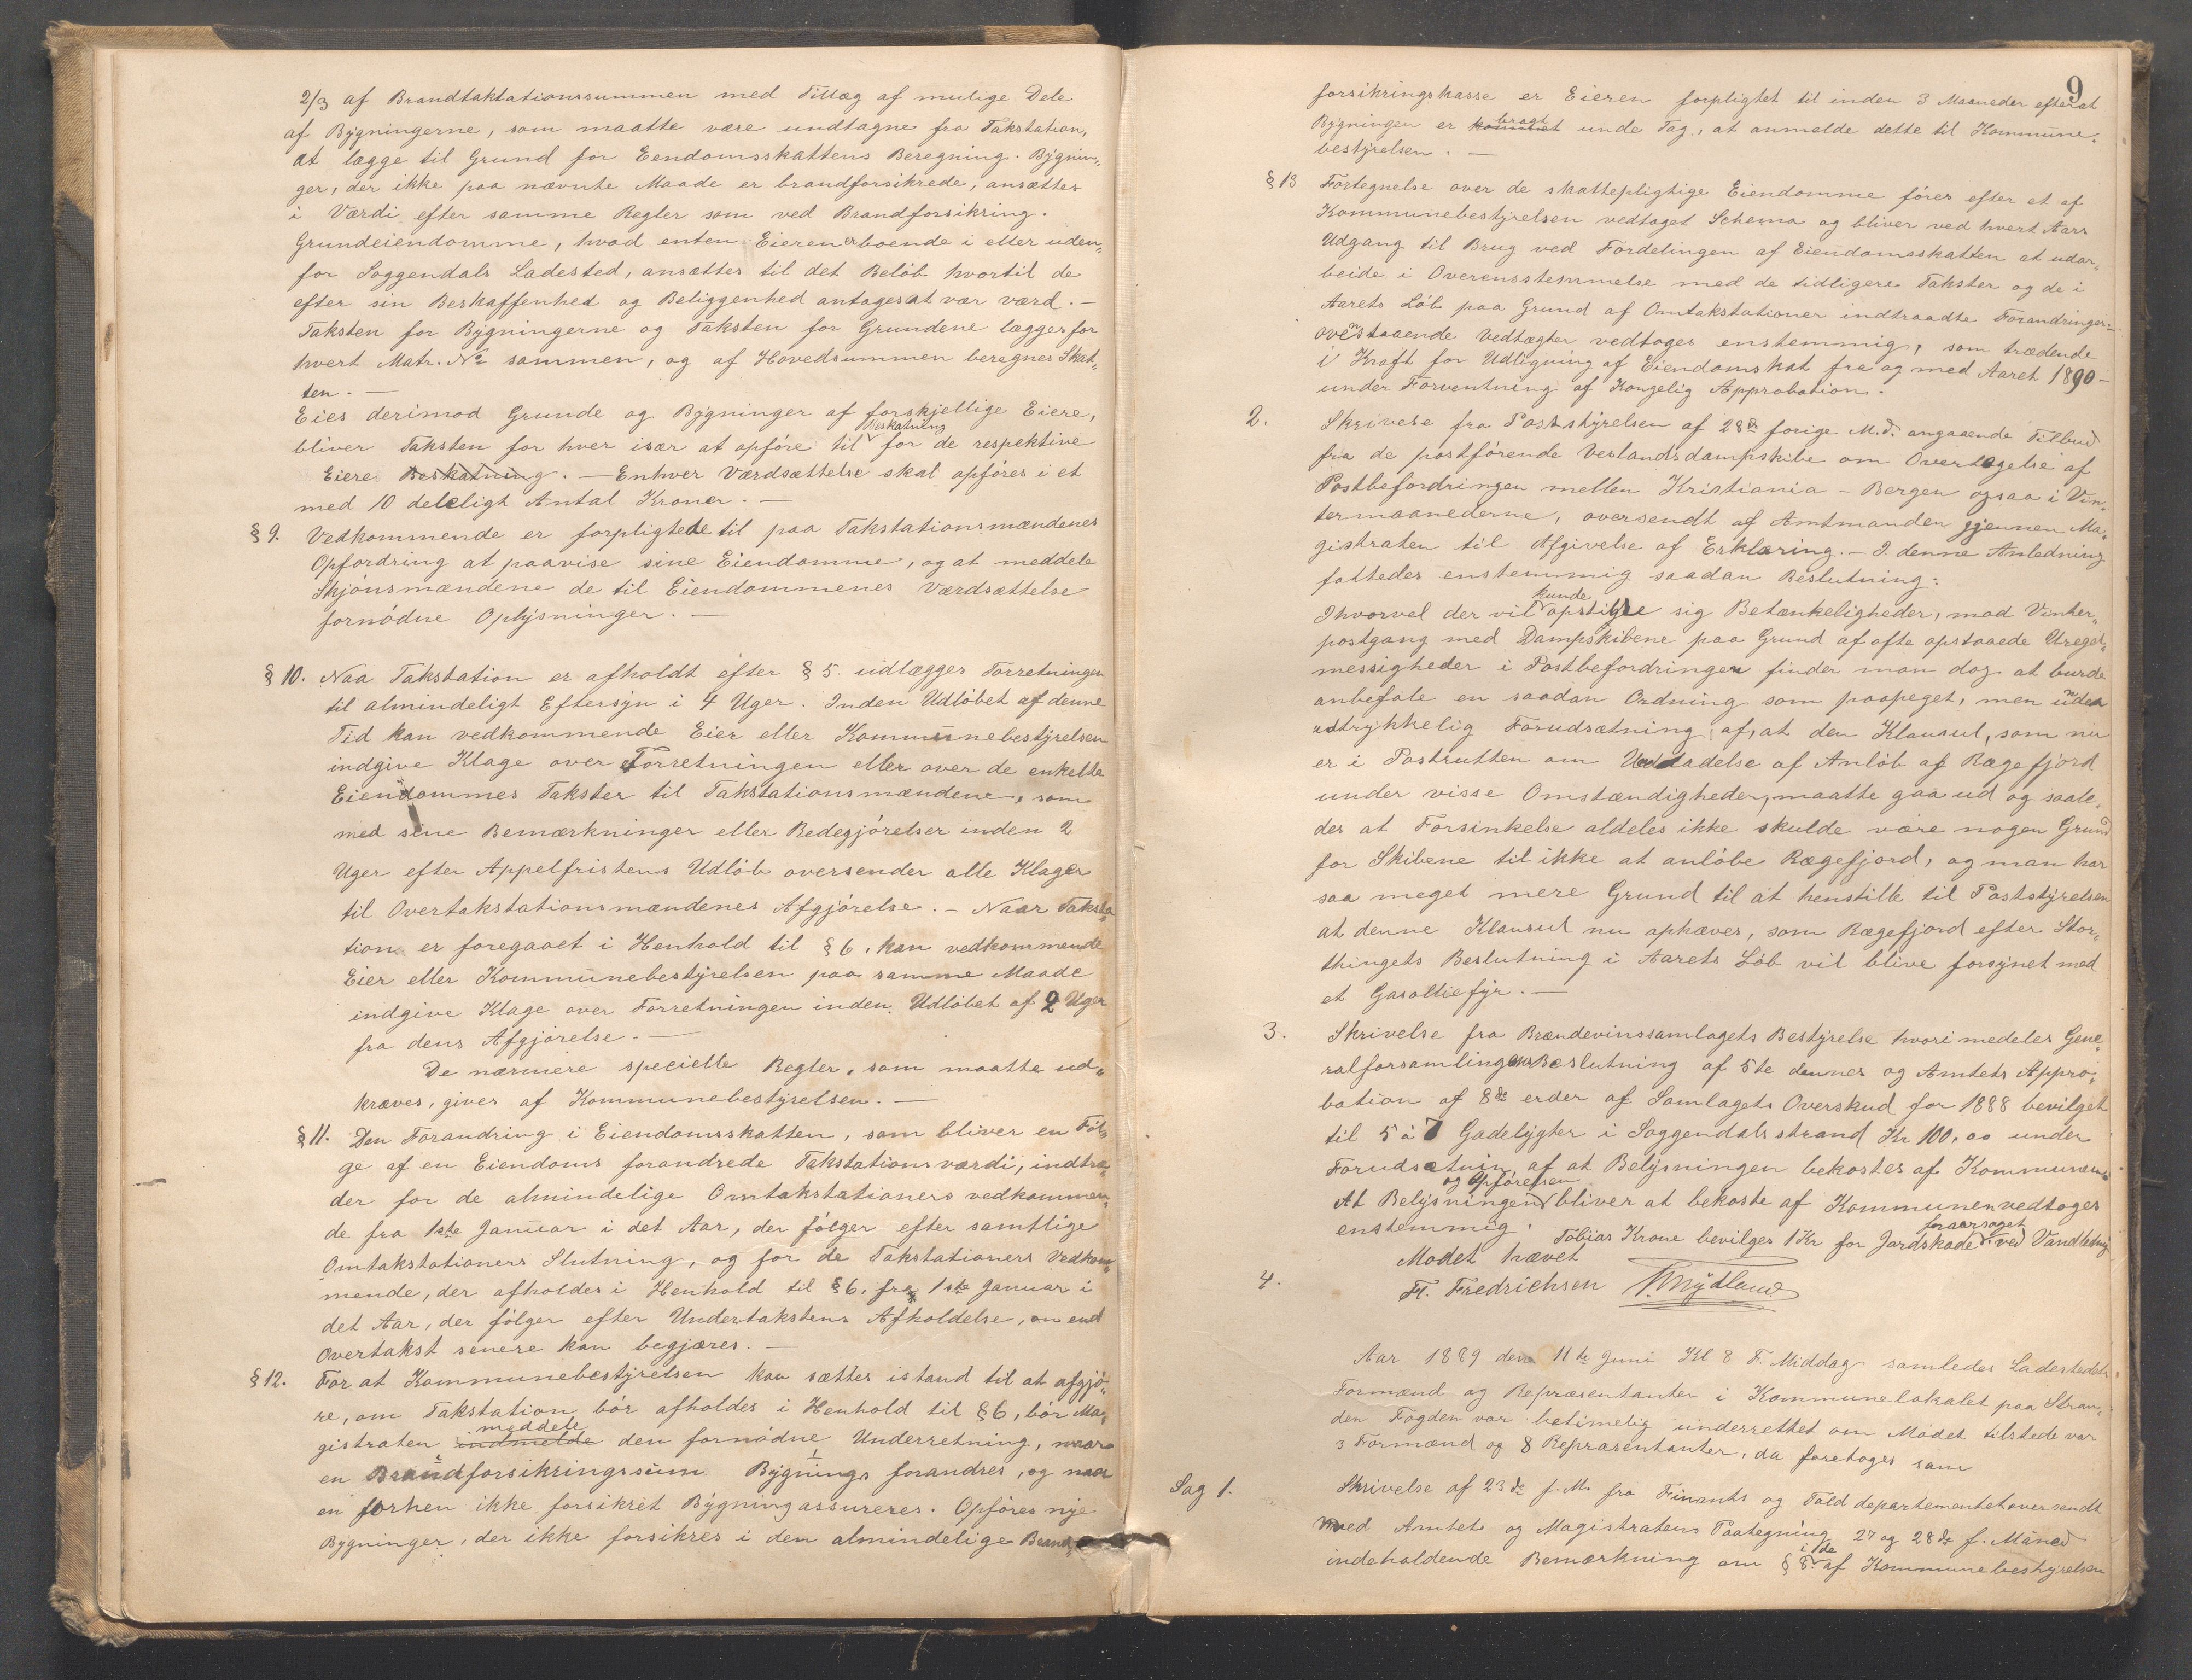 2/3 af Brandtaktationssummen med Tillæg af mulige Dele
af Bygningerne, som maatte være undtagne fra Takstation,
at lægge til Grund for Eendomsskattens Beregning. Bygnin„
ger, der ikke paa nævnte Maade er brandforsikrede, ansættes
i Værdi efter samme Regler som ved Brandforsikring.
Grundeiendomme, hvad enten Eieren er boende i eller uden„
for Soggendals Ladested, ansættes til det Beløb hvortil de
efter sin Beskaffenhed og Beliggenhed antages at vær værd. —
Taksten for Bygningerne og Taksten for Grundene lægges for
hvert Matr. No sammen, og af Hovedsummen beregnes Skat„
ten. —
Eies derimod Grunde og Bygninger af forskjellige Eiere,
Beskatning
bliver Taksten for hver især at opføre til for de respektive
Eiere Beskatning. — Enhver Værdsættelse skal opføres i et
med 10 deleligt Antal Kroner. —
§ 9. Vedkommende er forpligtede til paa Takstationsmændenes
Opfordring at paavise sine Eiendomme, og at meddele
Skjønsmændene de til Eiendommenes Værdsættelse
fornødne Oplysninger. —
§ 10. Naa Takstation er afholdt efter § 5. udlægges Forretningen
til almindeligt Eftersyn i 4 Uger. Inden Udløbet af denne
Tid kan vedkommende Eier eller Kommunebestyrelsen
indgive Klage over Forretningen eller over de enkelte
Eiendommes Takster til Takstationsmændene, som
med sine Bemærkninger eller Redegjørelser inden 2
Uger efter Appelfristens Udløb oversender alle Klager
til Overtakstationsmændenes Afgjørelse. — Naar Taksta„
tion er foregaaet i Henhold til § 6, kan vedkommende
Eier eller Kommunebestyrelsen paa samme Maade
indgive Klage over Forretningen inden Udløbet af 2 Uger
fra dens Afgjørelse. —
De nærmere specielle Regler, som maatte ud„
kræves, gives af Kommunebestyrelsen. —
§ 11. Den Forandring i Eiendomsskatten, som bliver en Føl„
ge af en Eiendoms forandrede Takstationsværdi, indtræ„
der for de almindelige Omtakstationers vedkommen„
de fra 1ste Januar i det Aar, der følger efter samtlige
Omtakstationers Slutning, og for de Takstationers Vedkom„
mende, der afholdes i Henhold til § 6. fra 1ste Januar i
det Aar, der følger efter Undertakstens Afholdelse, om end
Overtakst senere kan begjæres. —
§ 12. For at Kommunebestyrelsen kan sættes istand til at afgjø„
re, om Takstation bør afholdes i Henhold til § 6, bør Ma„
meddele
gistraten indmelde den fornødne Underretning, naar
en Brandforsikringssum Bygnings forandres, og naar
en forhen ikke forsikret Bygning assureres. Opføres nye
Bygninger, der ikke forsikres i den almindelige Brand„
9
forsikringskasse er Eieren forpligtet til inden 3 Maaneder efterat
bragt
Bygningen er kommet unde Tag, at anmelde dette til Kommune„
bestyrelsen. —
§ 13 Fortegnelse over de skattepligtige Eiendomme føres efter et af
Kommunebestyrelsen vedtaget Schema og bliver ved hvert Aars
Udgang til Brug ved Fordelingen af Eiendomsskatten at udar„
beide i Overensstemmelse med de tidligere Takster og de i
Aarets Løb paa Grund af Omtakstationer indtraadte Forandringer. —
ovenstaaende Vedtægter vedtoges enstemmig, som trædende
i Kraft for Udligning af Eiendomskat fra og med Aaret 1890 —
under Forventning af Kongelig Approbation.
2. Skrivelse fra Poststyrelsen af 28de forige M.d. angaaende Tilbud
fra de postførende Vestlandsdampskibe om Overtagelse af
Postbefordringen mellen Kristiania - Bergen ogsaa i Vin„
termaanederne, oversendt af Amtmanden gjennen Ma„
gistraten til Afgivelse af Erklæring. — I denne Anledning
fattedes enstemmig saadan Beslutning:
kunde
Ihvorvel der vil opstille sig Betænkeligheder, mod Vinter„
postgang med Dampskibene paa Grund af ofte opstaaede Uregel„
messigheder i Postbefordringen finder man dog at burde
anbefale en saadan Ordning som paapeget, men under
udtrykkelig Forudsætning af, at den Klausul, som nu
er i Postrutten om Undladelse af Anløb af Rægefjord
under visse Omstændigheder, maatte gaa ud og saale„
des at Forsinkelse aldeles ikke skulde være nogen Grund
for Skibene til ikke at anløbe Rægefjord, og man har
saa meget mere Grund til at henstille til Poststyrelsen
at denne Klausul nu ophæves, som Rægefjord efter Stor„
thingets Beslutning i Aarets Løb vil blive forsynet med
et Gasoliefyr. —
3. Skrivelse fra Brændevinssamlagets Bestyrelse hvori medeles Gene„
ralforsamlingens Beslutning af 5te dennes og Amtets Appro„
bation af 8de er der af Samlagets Overskud for 1888 bevilget
til 5 à 7 Gadelygter i Soggendalsstrand Kr 100,00 under
Forudsætnin, af at Belysningen bekostes af Kommunen.
og Opførelsen
At Belysningen bliver at bekoste af Kommunen vedtoges
enstemmig.
foraarsaget
4. Tobias Krone bevilges 1 Kr for Jordskade ved Vandledning
Mødet hævet
Fr. Fredrichsen T. Mydland
Aar 1889 den 11te Juni Kl. 8 F. Middag samledes Ladestedets
Formænd og Repræsentanter i Kommunelokalet paa Stran„
den Fogden var betimelig underrettet om Mødet tilstede var
3 Formænd og 8 Repræsentanter, da foretoges som
Sag 1. Skrivelse af 23de f. M. fra Finants og Told departementet oversendt
med Amtets og Magistratens Paategning 27 og 28de f. Måned
i de
indeholdende Bemærkning om § 8. af Kommunebestyrelsen